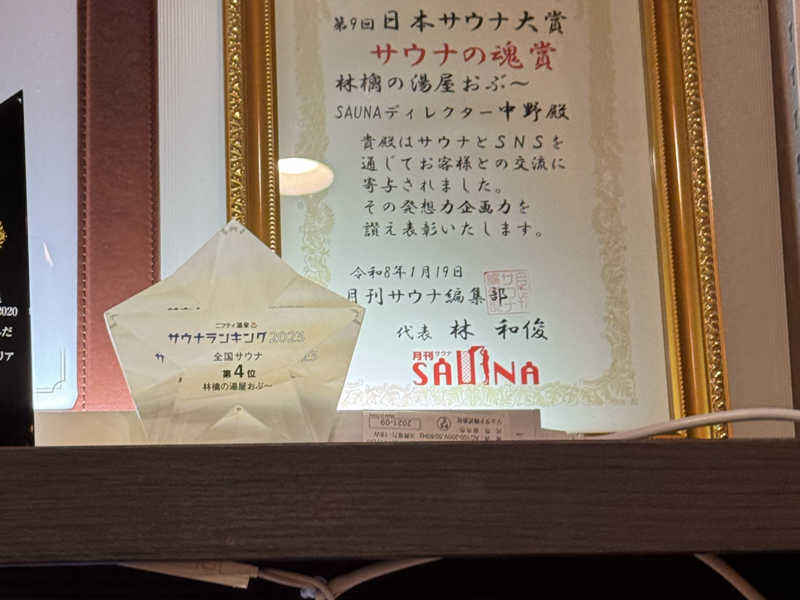 第9回日本サウナ大賞
サウナの魂賞
林檎の湯屋おぶ〜
SAUNAディレクター中野殿
貴殿はサウナとSNSを
通じてお客様との交流に
寄与されました。
その発想力企画力を
讃え表彰いたします。
令和8年1月19日
月刊サウナ編集部
代表 林 和俊
月刊サウナ
SAUNA
ニフティ温泉
サウナランキング2023
全国サウナ
第4位
林檎の湯屋おぶ〜
2020
2021-09